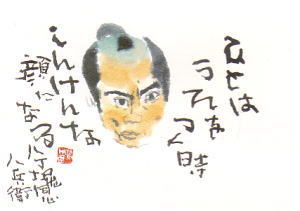 ひとは
うそをつく時
しんけんな
顔になる
八兵衛